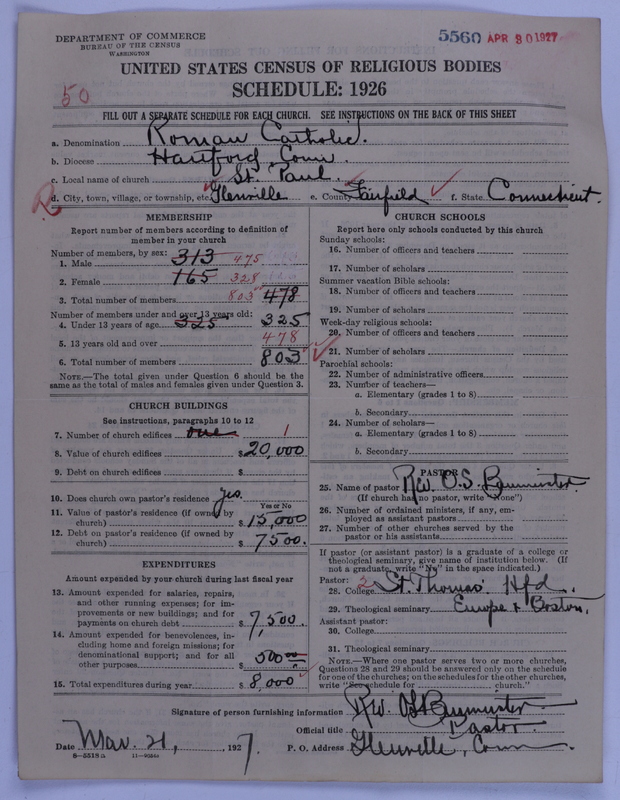 DEPARTMENT OF COMMERCE
BUREAU OF THE CENSUS
WASHINGTON
5560 APR 30 1927
UNITED STATES CENSUS OF RELIGIOUS BODIES
SCHEDULE: 1926
50
FILL OUT A SEPARATE SCHEDULE FOR EACH CHURCH. SEE INSTRUCTIONS ON THE BACK OF THIS SHEET
a. Denomination Roman Catholic.
b. Diocese Hartford, Conn.
c. Local name of church St. Paul.
R d. City, town, village, or township, etc. Glenville e. County Fairfield f. State Connecticut.
MEMBERSHIP
Report number of members according to definition of
member in your church
Number of members, by sex:
1. Male 313 475
2. Female 165 328
3. Total number of members 803 478
Number of members under and over 13 years old:
4. Under 13 years of age 325 325
5. 13 years old and over 478
6. Total number of members 803
NOTE.—The total given under Question 6 should be the
same as the total of males and females given under Question 3.
CHURCH BUILDINGS
See instructions, paragraphs 10 to 12
7. Number of church edifices one 1
8. Value of church edifices $20,000
9. Debt on church edifices $
10. Does church own pastor's residence yes.
Yes or No
11. Value of pastor's residence (if owned by
church) $15,000
12. Debt on pastor's residence (if owned by
church) $7500.
EXPENDITURES
Amount expended by your church during last fiscal year
13. Amount expended for salaries, repairs,
and other running expenses; for im-
provements or new buildings; and for
payments on church debt $7,500.
14. Amount expended for benevolences, in-
cluding home and foreign missions; for
denominational support; and for all
other purposes 500 00
15. Total expenditures during year $8,000
CHURCH SCHOOLS
Report here only schools conducted by this church
Sunday schools:
16. Number of officers and teachers
17. Number of scholars
Summer vacation Bible schools:
18. Number of officers and teachers
19. Number of scholars
Week-day religious schools:
20. Number of officers and teachers
21. Number of scholars
Parochial schools:
22. Number of administrative officers
23. Number of teachers—
a. Elementary (grades 1 to 8)
b. Secondary
24. Number of scholars—
a. Elementary (grades 1 to 8)
b. Secondary
PASTOR
25. Name of pastor Rev. O.S. Baumeister.
(If church has no pastor, write "None")
26. Number of ordained ministers, if any, em-
ployed as assistant pastors
27. Number of other churches served by the
pastor or his assistants
If pastor (or assistant pastor) is a graduate of a college or
theological seminary, give name of institution below. (If
not a graduate, write "No" in the space indicated.)
Pastor: 2
28. College St. Thomas' Hfd.
29. Theological seminary Europe + Boston.
Assistant pastor:
30. College
31. Theological seminary
NOTE.—Where one pastor serves two or more churches,
Questions 28 and 29 should be answered only on the schedule
for one of the churches; on the schedules for the other churches,
write "See schedule for church."
Signature of person furnishing information Rev. OS Baumeister
Official title Pastor
Date Mar. 21, 1927. P. O. Address Glenville, Conn.
8—5518a 11—9084a